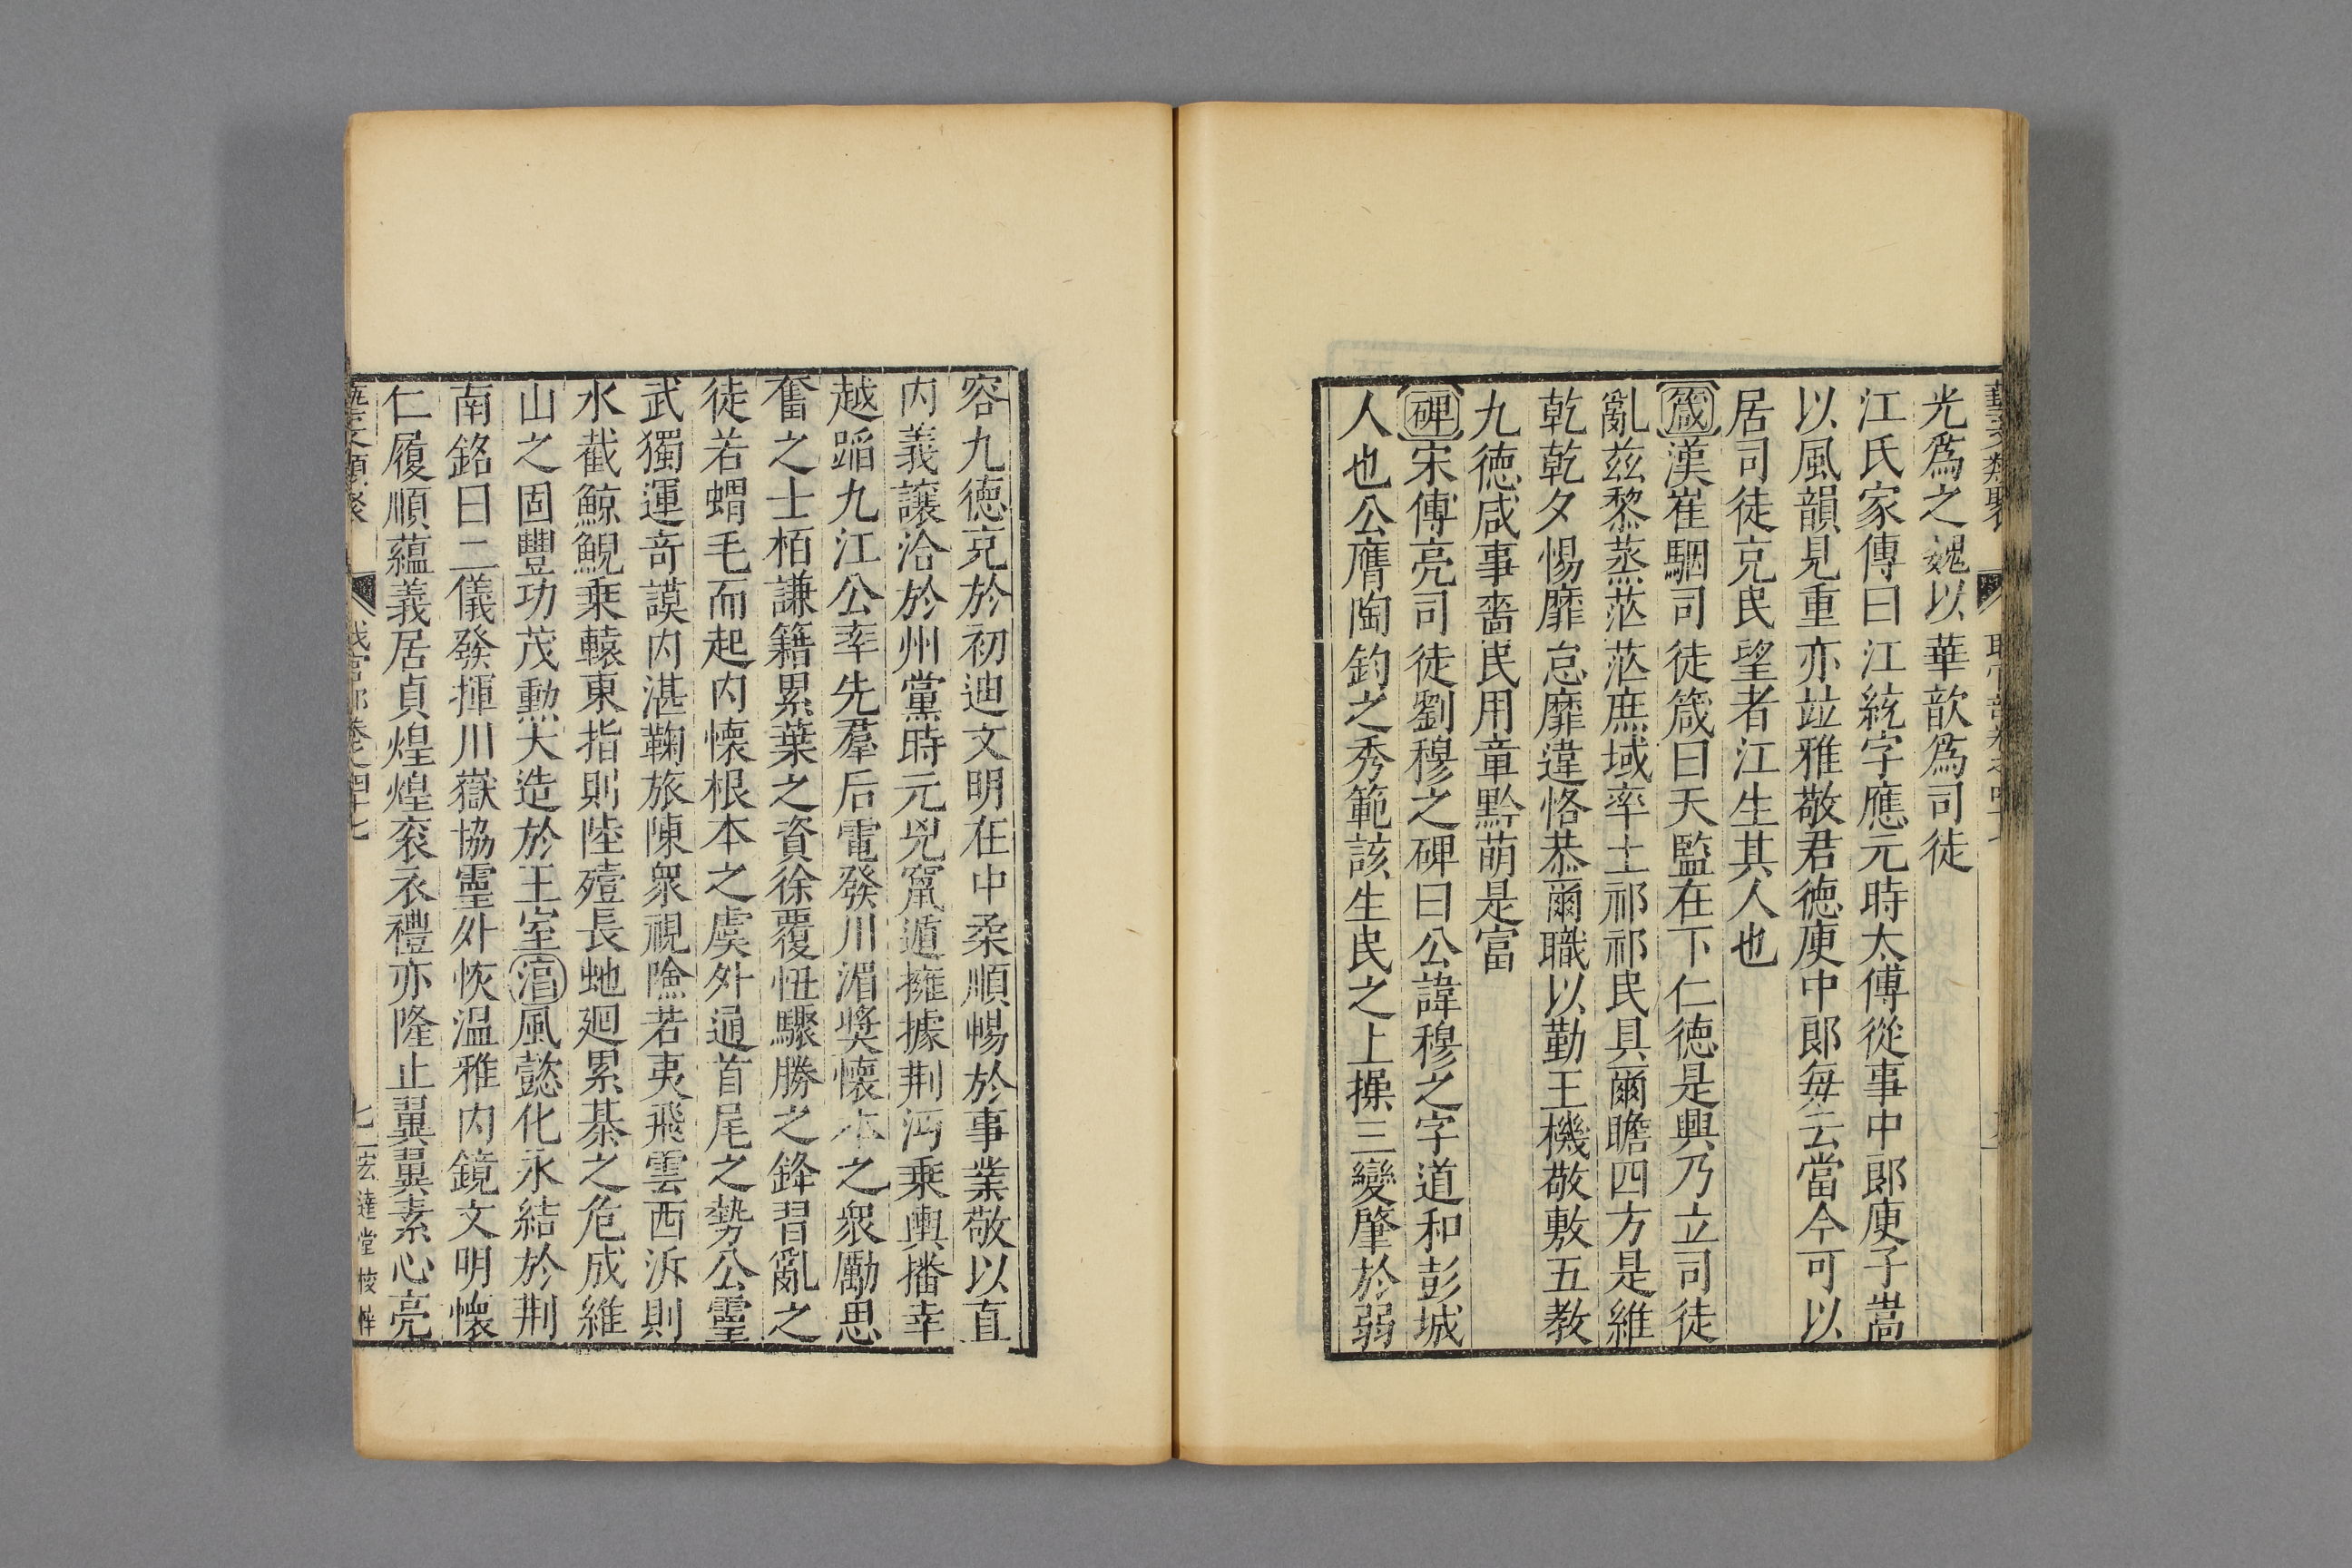 光爲之魏以華歆爲司徒
江氏家傳曰江統字應元時太傅從事中郎庾子嵩
以風韻見重亦竝雅敬君德庾中郎每云當今可以
居司徒克民望者江生其人也
箴漢崔駰司徒箴曰天監在下仁德是興乃立司徒
亂茲黎蒸茫茫庶域率土祁祁民具爾瞻四方是維
乾乾夕惕靡怠靡違恪恭爾職以勤王機敬敷五教
九德咸事嗇民用章黔萌是富
碑宋傅亮司徒劉穆之碑曰公諱穆之字道和彭城
人也公膺陶鈞之秀範該生民之上操三變肇於弱
容九德克於初迪文明在中柔順暢於事業敬以直
内義讓洽於州黨時元兇竄遁擁據荆沔乗輿播幸
越蹈九江公率先羣后電發川湄獎懷本之衆勵思
奮之士栢謙籍累葉之資徐覆忸驟勝之鋒習亂之
徒若蝟毛而起内懷根本之虞外通首尾之勢公靈
武獨運奇謨内湛鞠旅陳衆視險若夷飛雲西泝則
水截鯨鯢乗轅東指則陸殪長虵廻累棊之危成維
山之固豐功茂勲大造於王室渻風懿化永結於荆
南銘曰二儀發揮川嶽協靈外恢温雅内鏡文明懷
仁履順蘊義居貞煌煌衮衣禮亦隆止翼翼素心亮